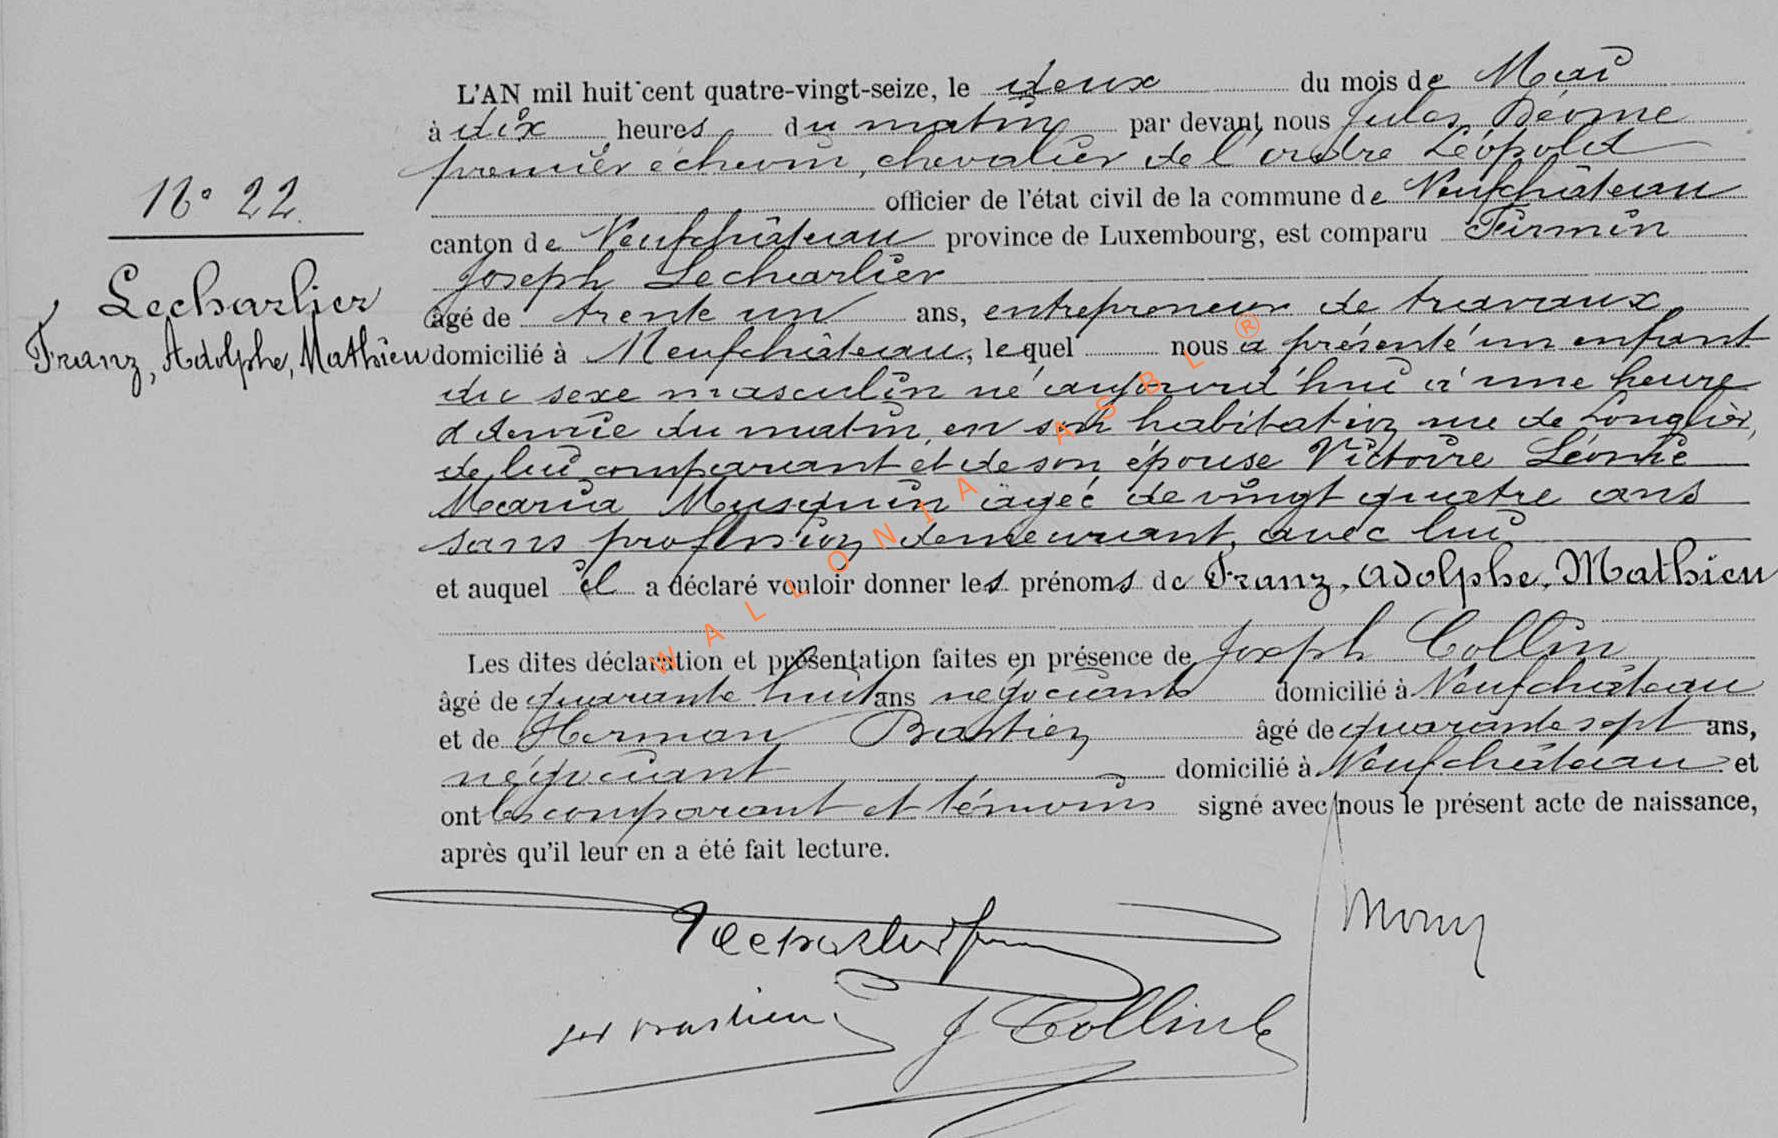 L'AN mil huit cent quatre-vingt-seize, le deux du mois de Mai
à dix heures du matin par devant nous Jules
premier échevin, chevalier de l'ordre Léopold
officier de l'état civil de la commune de Neufchâteau
canton de Neufchâteau province de Luxembourg, est comparu Firmin
Joseph Lecharlier
âgé de trente un ans, entrepreneur de travaux
domicilié à Neufchâteau, lequel nous a présenté un enfant
du sexe masculin né aujourd'hui à une heure
& demie du matin, en son habitation rue de Longlier,
de lui comparant et de son épouse Victoire Léonie
Maria Musquin âgée de vingt quatre ans
sans profession demeurant, avec lui
et auquel il a déclaré vouloir donner les prénoms de Franz, Adolphe, Mathieu
Les dites déclaration et présentation faites en présence de Joseph Collin
âgé de quarante huit ans négociant domicilié à Neufchâteau
et de Herman Bastien âgé de quarante sept ans,
négociant domicilié à Neufchâteau et
ont les comparant et témoins signé avec nous le présent acte de naissance,
après qu'il leur en a été fait lecture.
N° 22
Lecharlier
Franz, Adolphe, Mathieu
Bastien
J Collin
WALLONIA ASBL ®